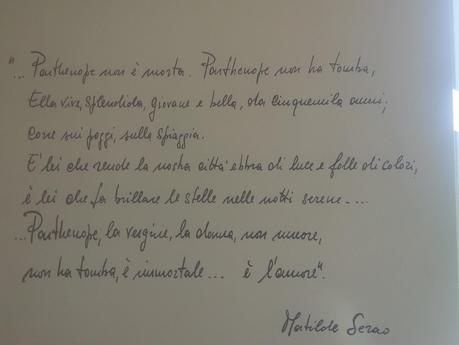 "... Parthenope non è morta. Parthenope non ha tomba,
Ella vive, splendida, giovane e bella, da cinquemila anni;
Corre sui poggi, sulla spiaggia.
E' lei che rende la nostra città ebbra di luce e folle di colori,
è lei che fa brillare le stelle nelle notti serene....
... Parthenope, la vergine, la donna, non muore,
non ha tomba, è immortale... è l'amore".
Matilde Serao